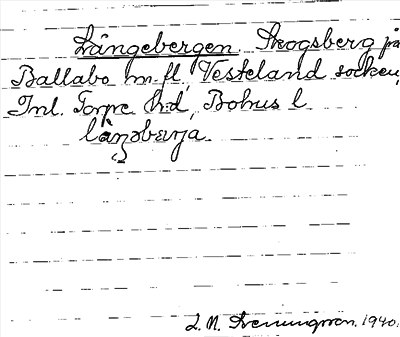 Långebergen. Skogsberg på
Ballabo m. fl, Vesteland socken,
Inl. Torpe h:d, Bohus l
långbærja.
1940.